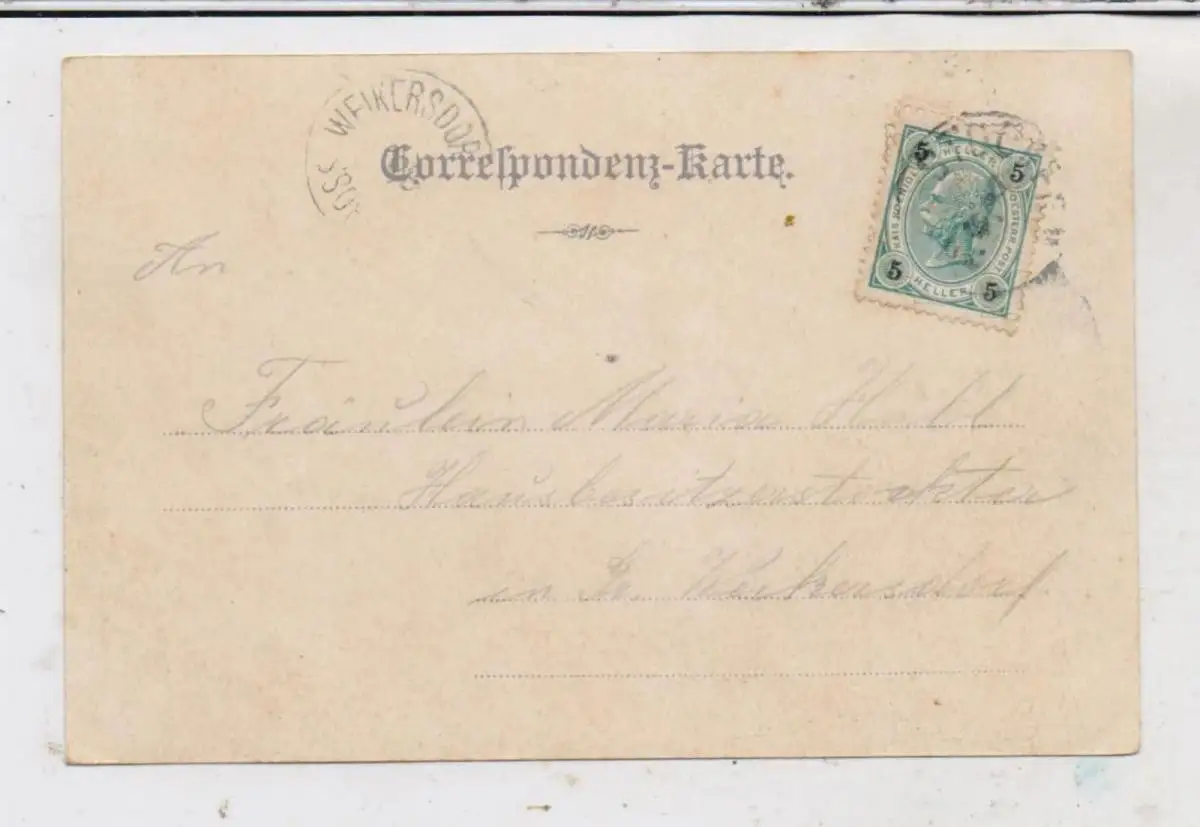 WEIKERSDORF
Correspondenz-Karte.
5 HELLER 5
KAIS. KOENIGL. OESTERR. POST
5 HELLER 5
An
Fräulein Maria
Hausbesitzerstochter
in Gr. Weikersdorf